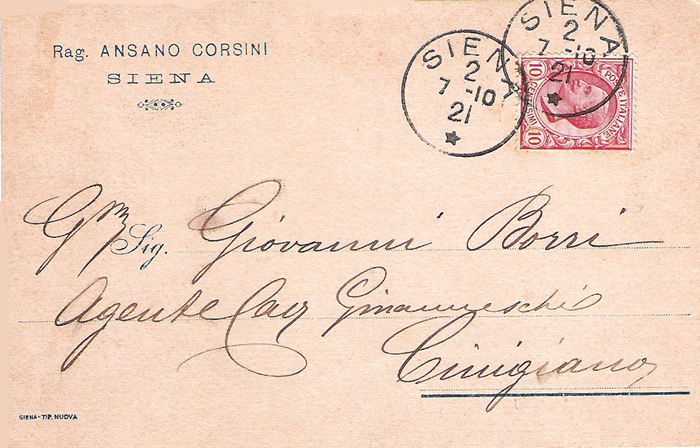 Rag. ANSANO CORSINI
SIENA
SIENA
2
7-10
21
SIENA
2
7-10
21
POSTE ITALIANE
10 CENTESIMI 10
Gm̃ Sig. Giovanni Borri
Agente Cav Ginanneschi
Cinigiano
SIENA-TIP. NUOVA